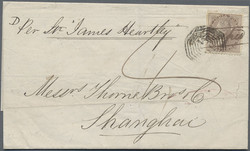 Per Str "James Hartley"
Messrs Thorne Bros & Co
Shanghai